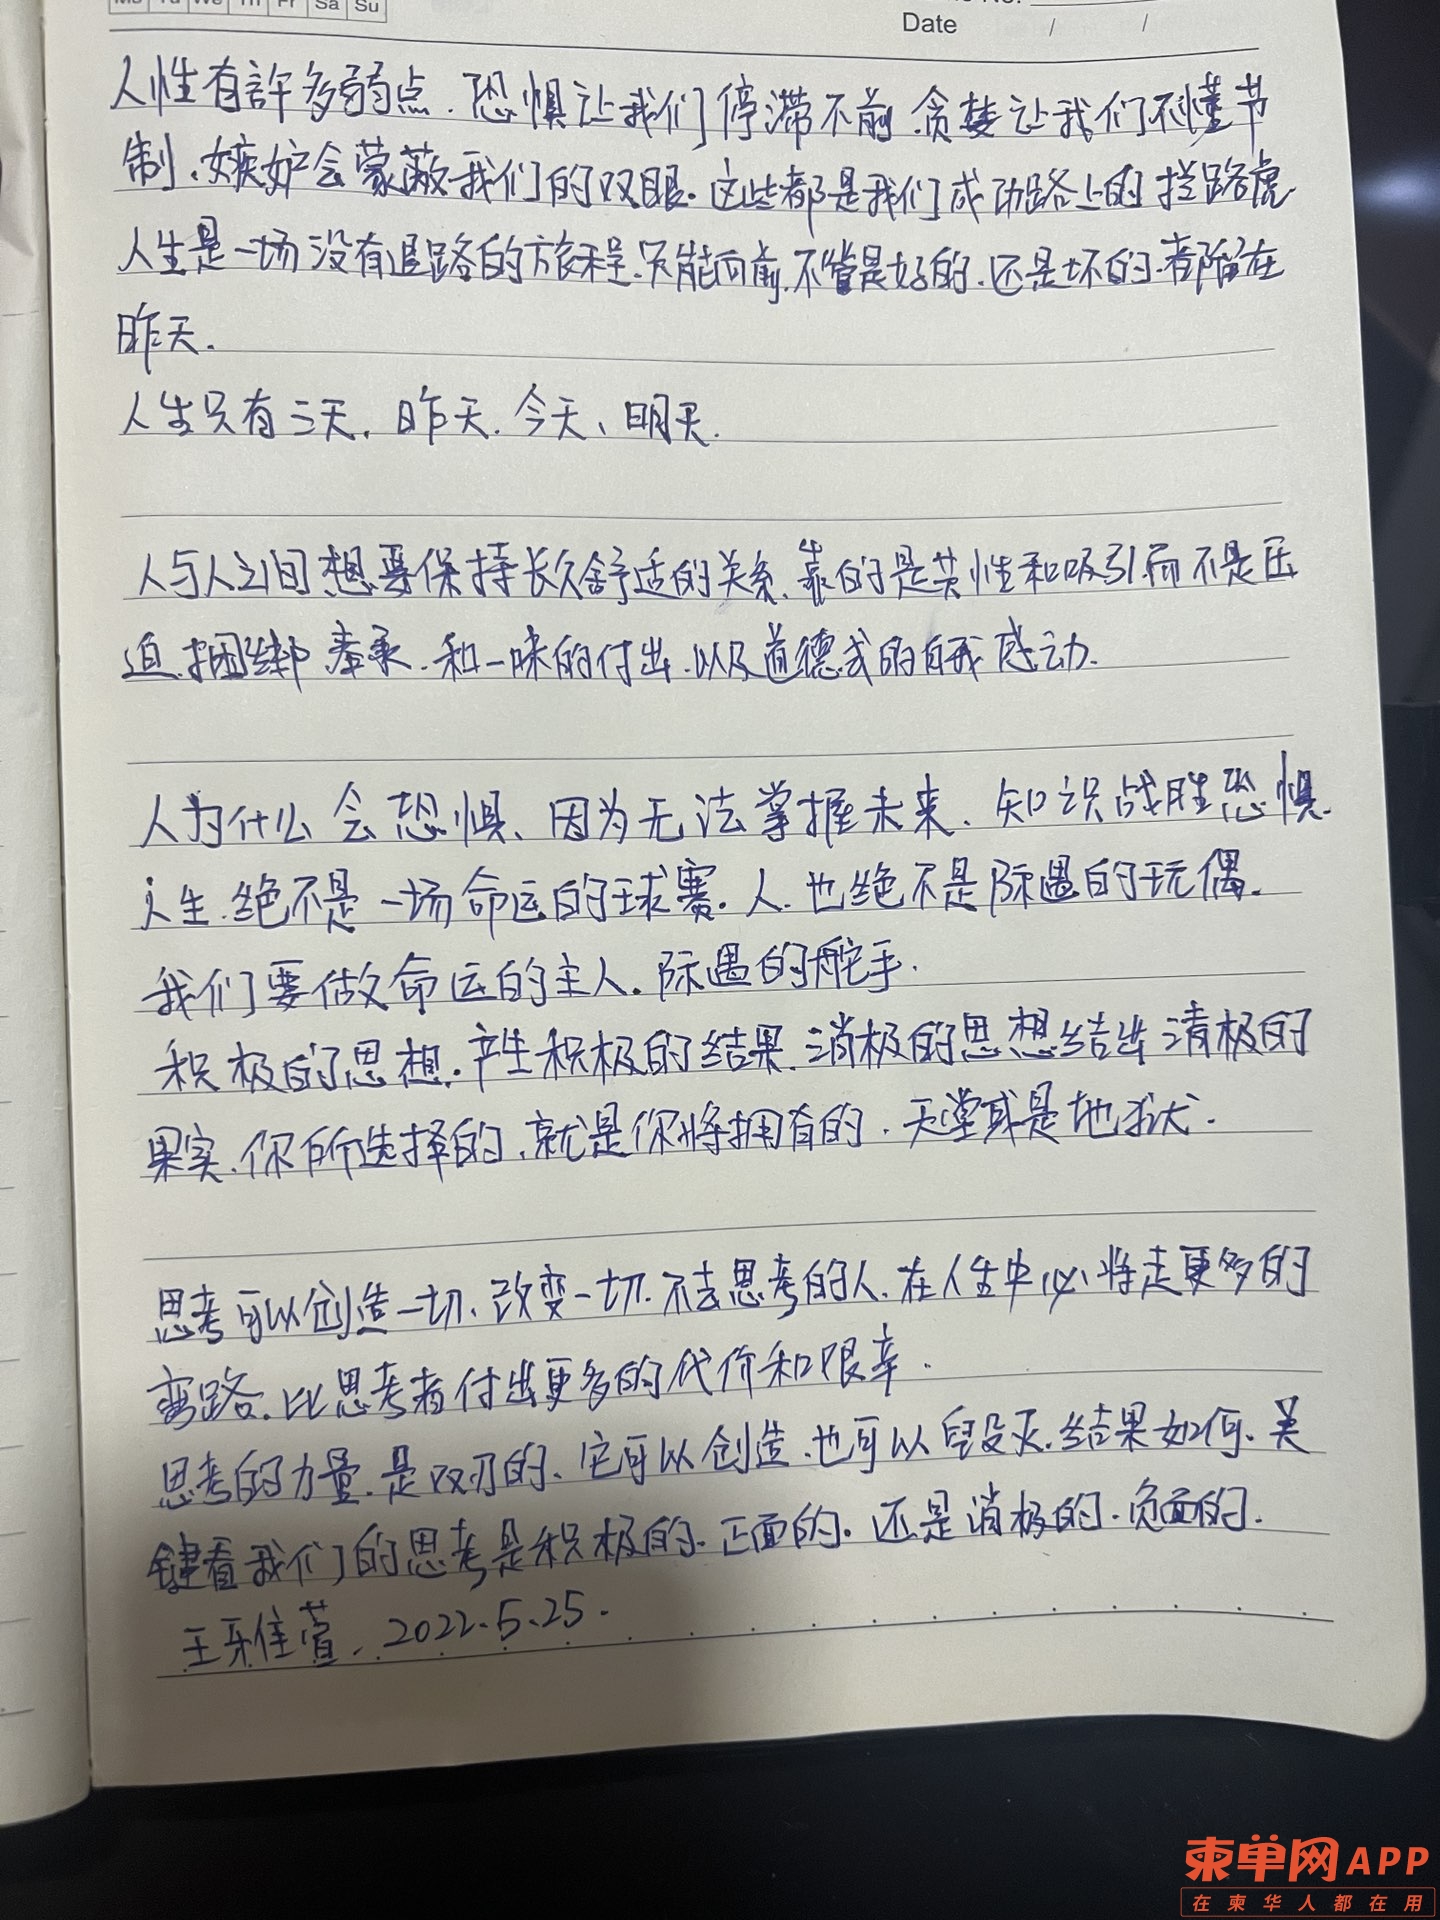 Mo Tu We Th Fr Sa Su
Date / /
人性有許多弱点.恐惧让我们停滞不前.贪婪让我们不懂节
制.嫉妒会蒙蔽我们的双眼.这些都是我们成功路上的拦路虎
人生是一场没有退路的旅程.只能向前.不管是好的.还是坏的.都留在
昨天.
人生只有三天.昨天.今天、明天.
人与人之间想要保持长久舒适的关系.靠的是共性和吸引.而不是压
迫.捆绑 奉承.和一味的付出.以及道德式的自我感动.
人为什么会恐惧、因为无法掌握未来、知识战胜恐惧.
人生.绝不是一场命运的球赛.人.也绝不是际遇的玩偶.
我们要做命运的主人.际遇的舵手.
积极的思想.产生积极的结果.消极的思想结出消极的
果实.你所选择的.就是你将拥有的.天堂或是地狱.
思考可以创造一切、改变一切.不去思考的人.在人生中必将走更多的
弯路.比思考者付出更多的代价和艰辛.
思考的力量.是双刃的、它可以创造.也可以毁灭.结果如何、关
键看我们的思考是积极的.正面的.还是消极的.负面的.
2022.5.25.
柬单网APP
在柬华人都在用